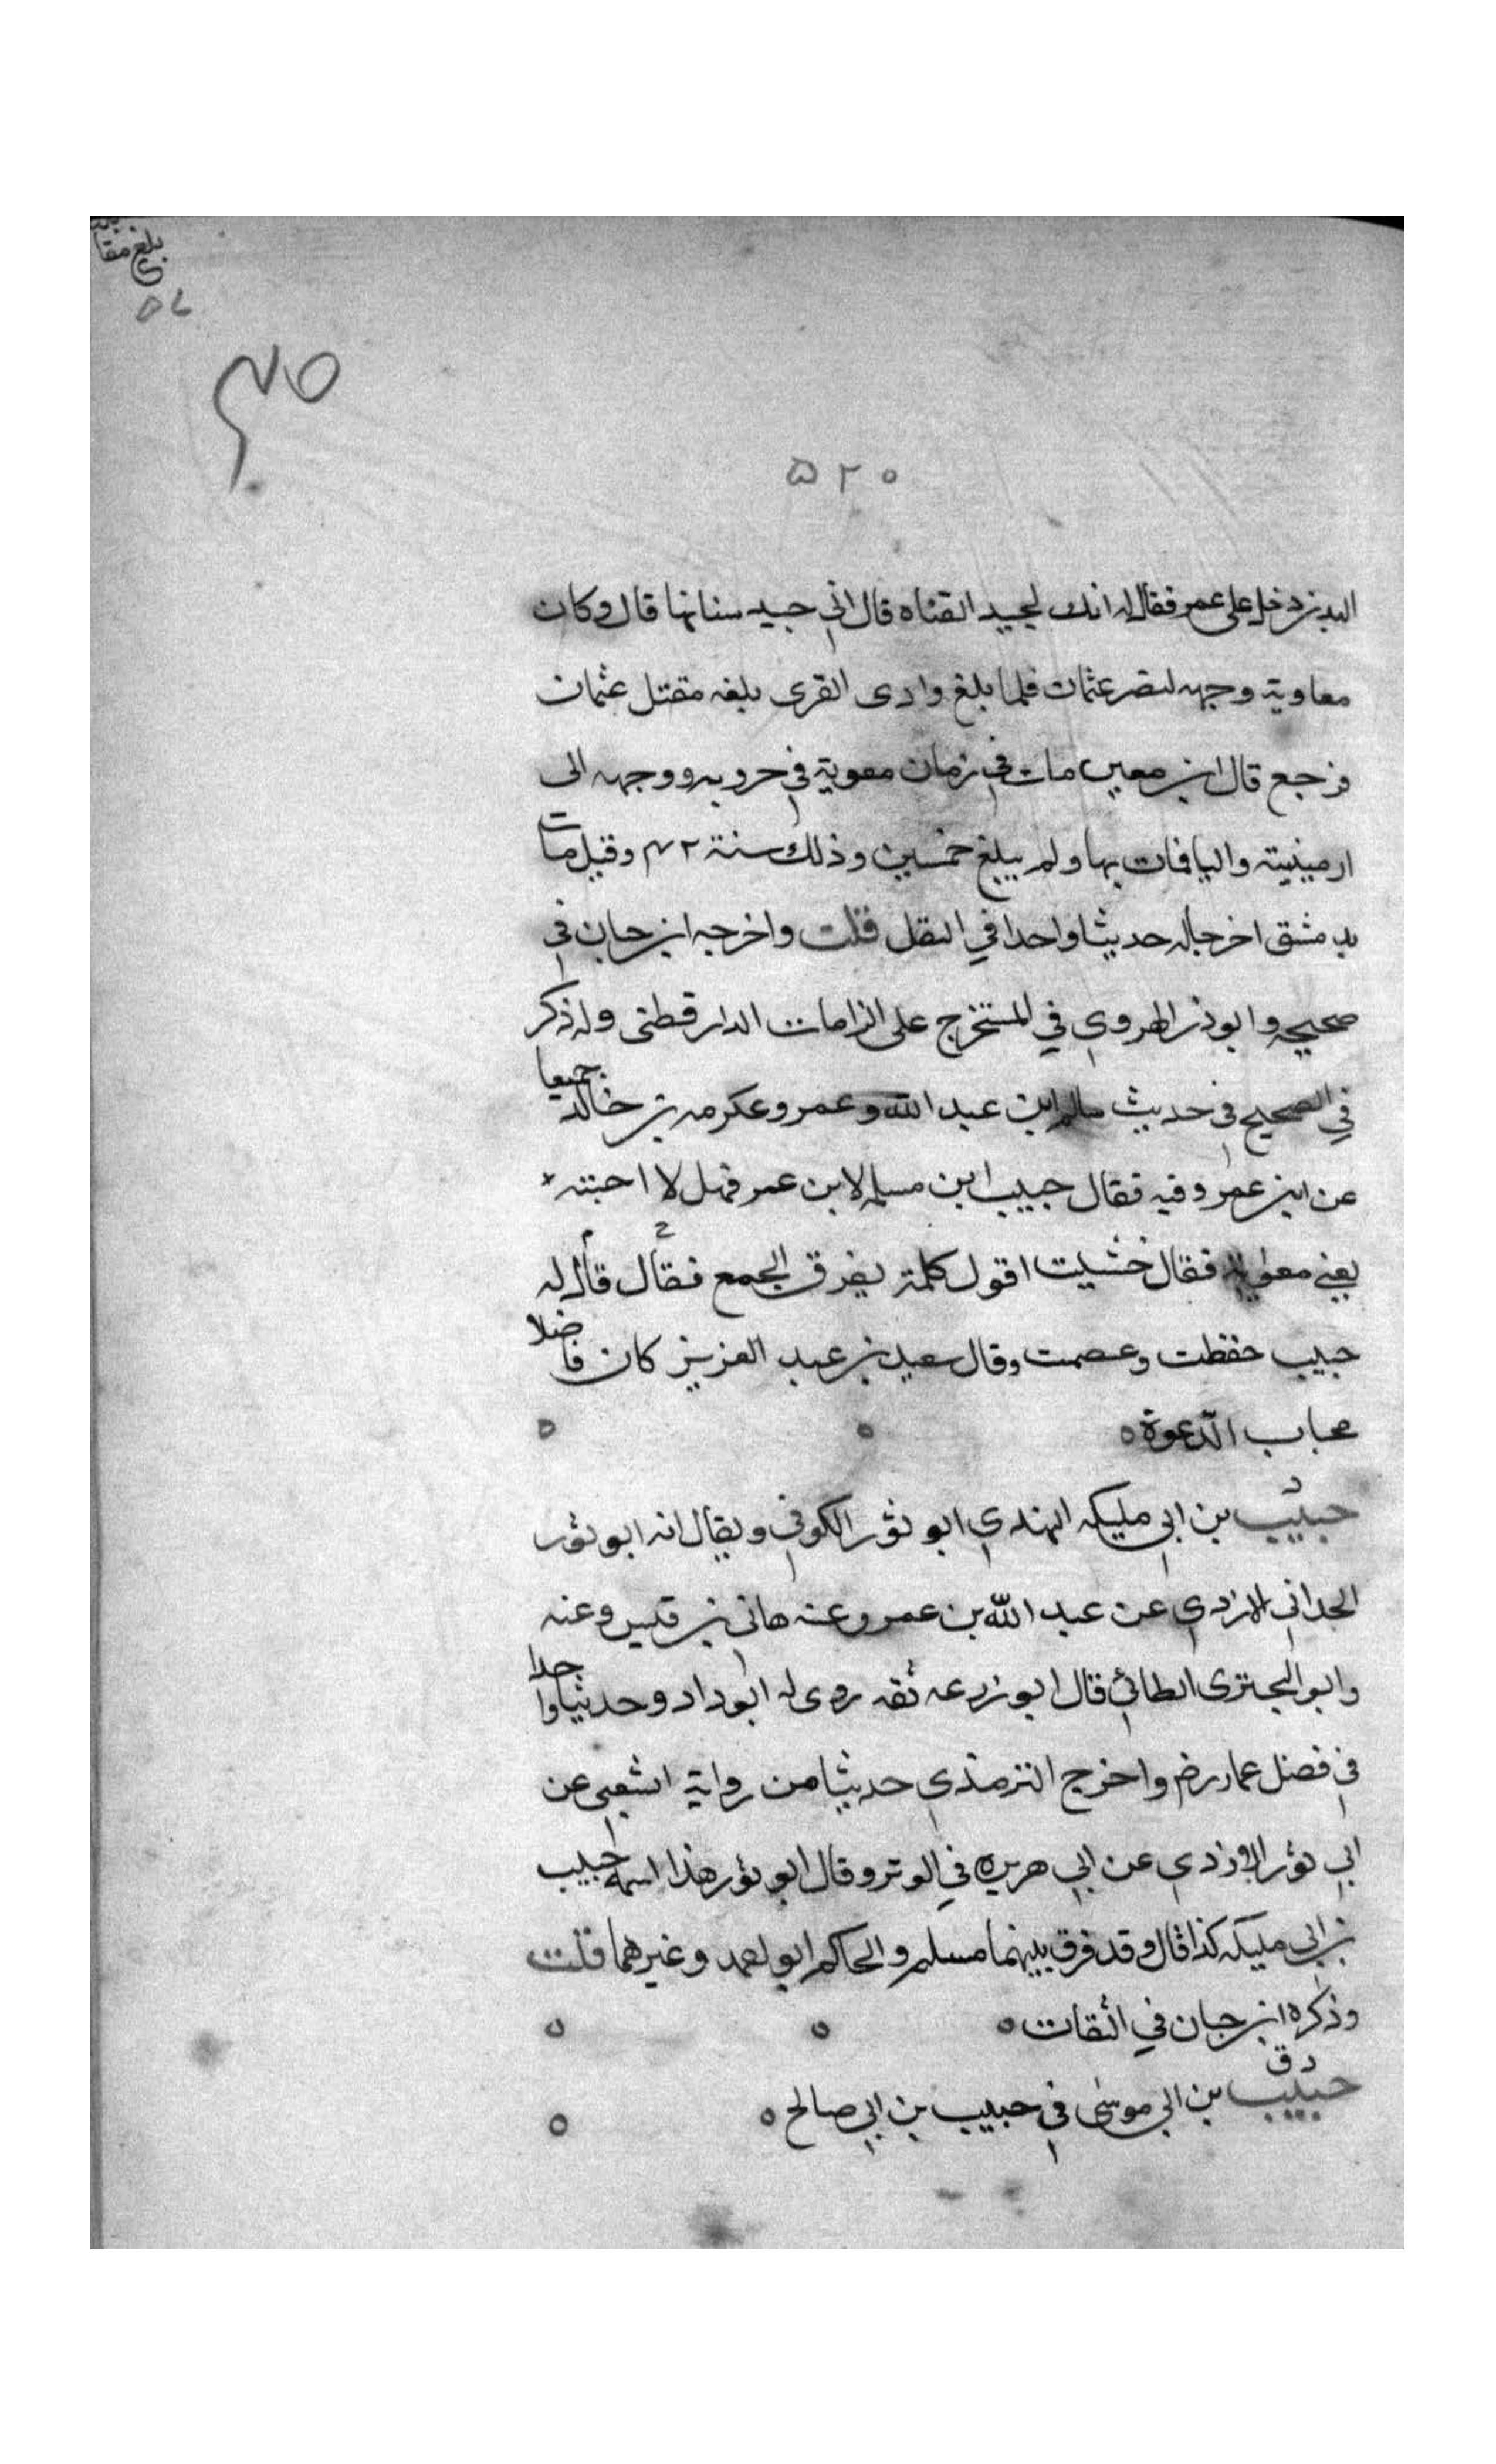 بلغ مقا
٥٧
٥٢٠
البدن دخل على عمر فقال له انك لجيد القناه قال اني جيد سنانها قال وكان
معاوية وجهه لنصر عثمان فلما بلغ وادى القرى بلغه مقتل عثمان
فرجع قال ابن معين مات في زمان معوية في حروبه ووجهه الى
ارمينية واليا فمات بها ولم يبلغ خمسين وذلك سنة ٤٢ وقيل مات
بدمشق اخرجا له حديثا واحدا في النقل قلت واخرجه ابن حبان في
صحيحه وابو ذر الهروي في المستخرج على الزامات الدارقطنى وله ذكر
في الصحيح في حديث سالم ابن عبد الله وعمرو عكرمه بن خالد جميعا
عن ابن عمر وفيه فقال حبيب ابن مسلمه لابن عمر فهل لا اجبته
يعني معوية فقال خشيت اقول كلمة يفرق الجمع فقال قال له
حبيب حفظت وعصمت وقال سعيد بن عبد العزيز كان فاضلا
مجاب الدعوة
د
حبيب بن ابي مليكه النهدي ابو ثور الكوفي ويقال انه ابو ثور
الحداني الازدي عن عبد الله بن عمر وعنه هانى بن قيس وعنه
وابو البحترى الطائي قال ابو زرعه ثقه روى له ابو داد وحديثا واحدا
في فضل عمار رض واخرج الترمذي حديثا من رواية الشعبى عن
ابي ثور الازدي عن ابي هريره في الوتر وقال ابو ثور هذا اسمه حبيب
بن ابي مليكه كذا قال وقد فرق بينهما مسلم والحاكم ابو احمد وغيرهما قلت
وذكره ابن حبان في الثقات
د ق
حبيب بن ابي موسى في حبيب بن ابي صالح